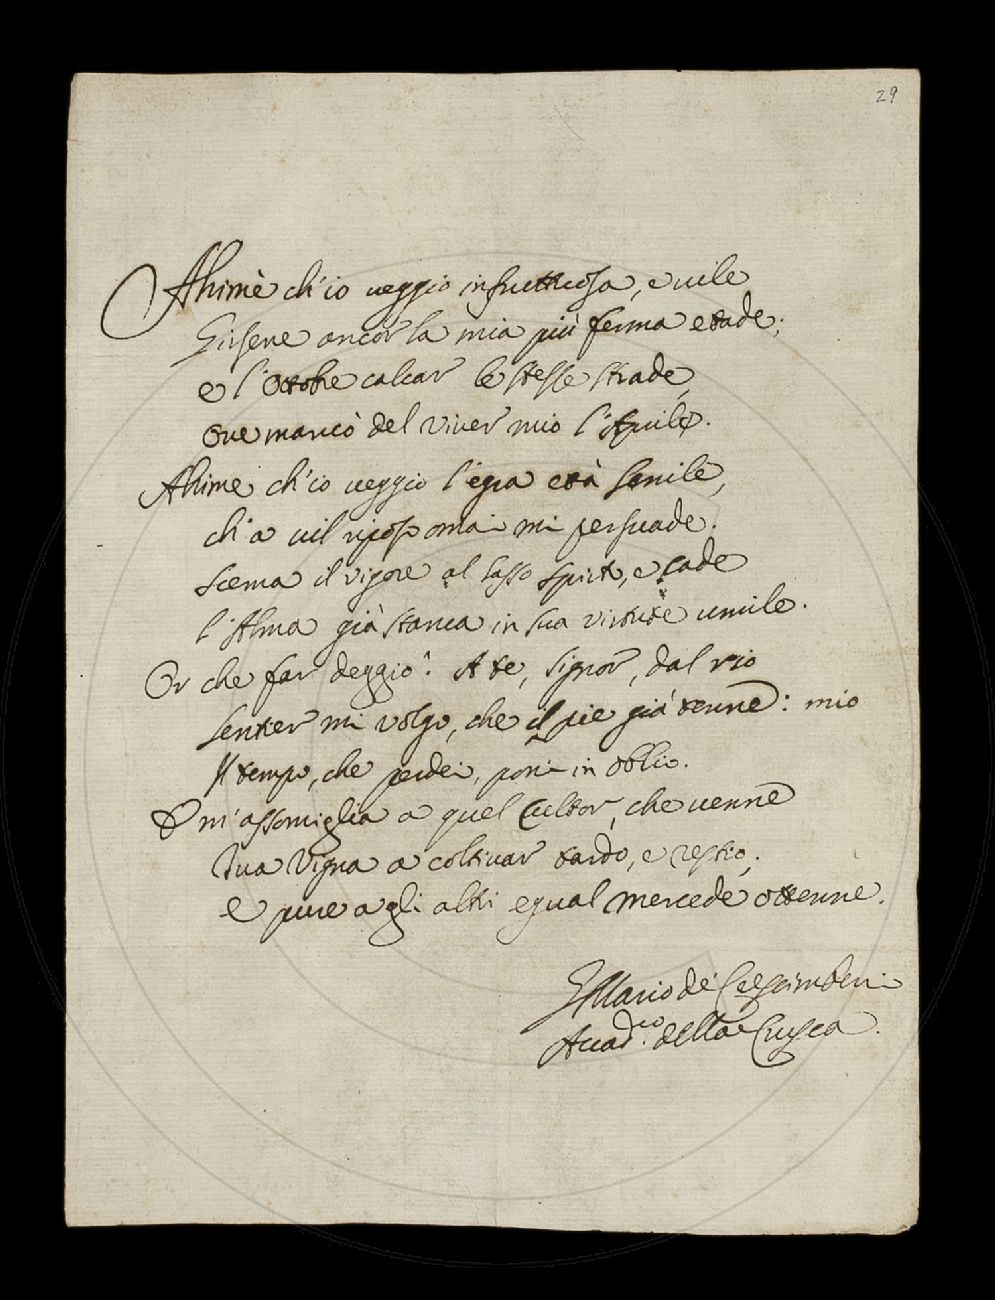 29
Ahimè ch'io veggio infruttuosa, e vile
Girsene ancor la mia più ferma etade;
e l'Ottobre calcar le stesse strade,
Ove mancò del viver mio l'Aprile.
Ahime ch'io veggio l'egra età senile,
ch'a vil riposo omai mi persuade.
scema il vigore al lasso spirto, e cade
l'Alma già stanca in sua virtute umile.
Or che far deggio? A te, Signor, dal rio
sentier mi volgo, che il piè già tenne: mio
Il tempo, che perdei, poni in oblio.
E m'assomiglia a quel Cultor, che venne
Tua Vigna a coltivar tardo, e restio;
e pure agli altri egual mercede ottenne.
Mario de' Crescimbeni
Accad.co della Crusca.